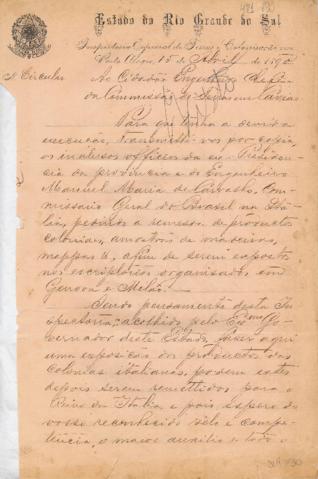 Estado do Rio Grande do Sul
Inspectoria Especial de Terras e Colonisação em
Porto Alegre, 15 de Abril de 1890
Circular
Ao Cidadão Engenheiro Chefe
da Commissão de Terras em Caxias
Para que tenha a devida
execução, transmitto-vos por copia,
os inclusos officios da ex-Presiden-
cia da provincia e do Engenheiro
Manuel Maria de Carvalho, Com-
missario Geral do Brasil na Ita-
lia, pedindo a remessa de productos
coloniaes, amostras de madeiras,
mappas &, afim de serem expostos
nos escriptorios organisados em
Genova e Milão.
Sendo pensamento desta Ins-
pectoria, acolhido pelo Exmo Go-
vernador deste Estado, fazer aqui
uma exposição dos productos das
colonias italianas, podem estes
depois serem remettidos para o
Reino da Italia e pois espero do
vosso reconhecido zelo e compe-
tencia, o maior auxilio e todo o